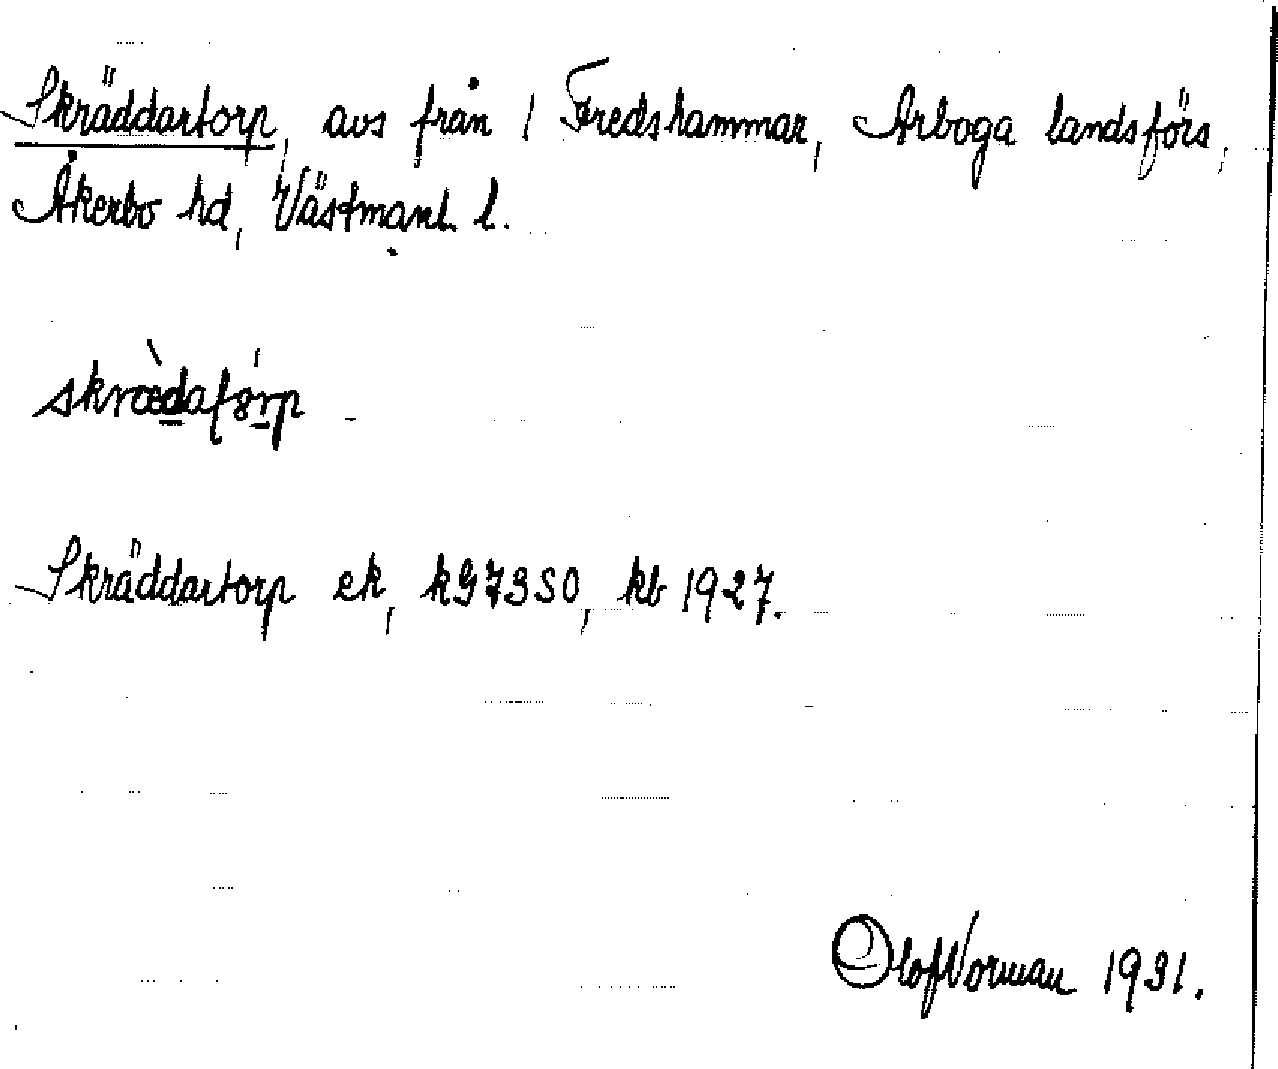 Skräddartorp, avs från 1 Fredshammar, Arboga landsförs,
Åkerbo hd, Västmanl. l.
skrædatørp
Skräddartorp ek, kG73SO, kb 1927.
Olof Norman 1931.